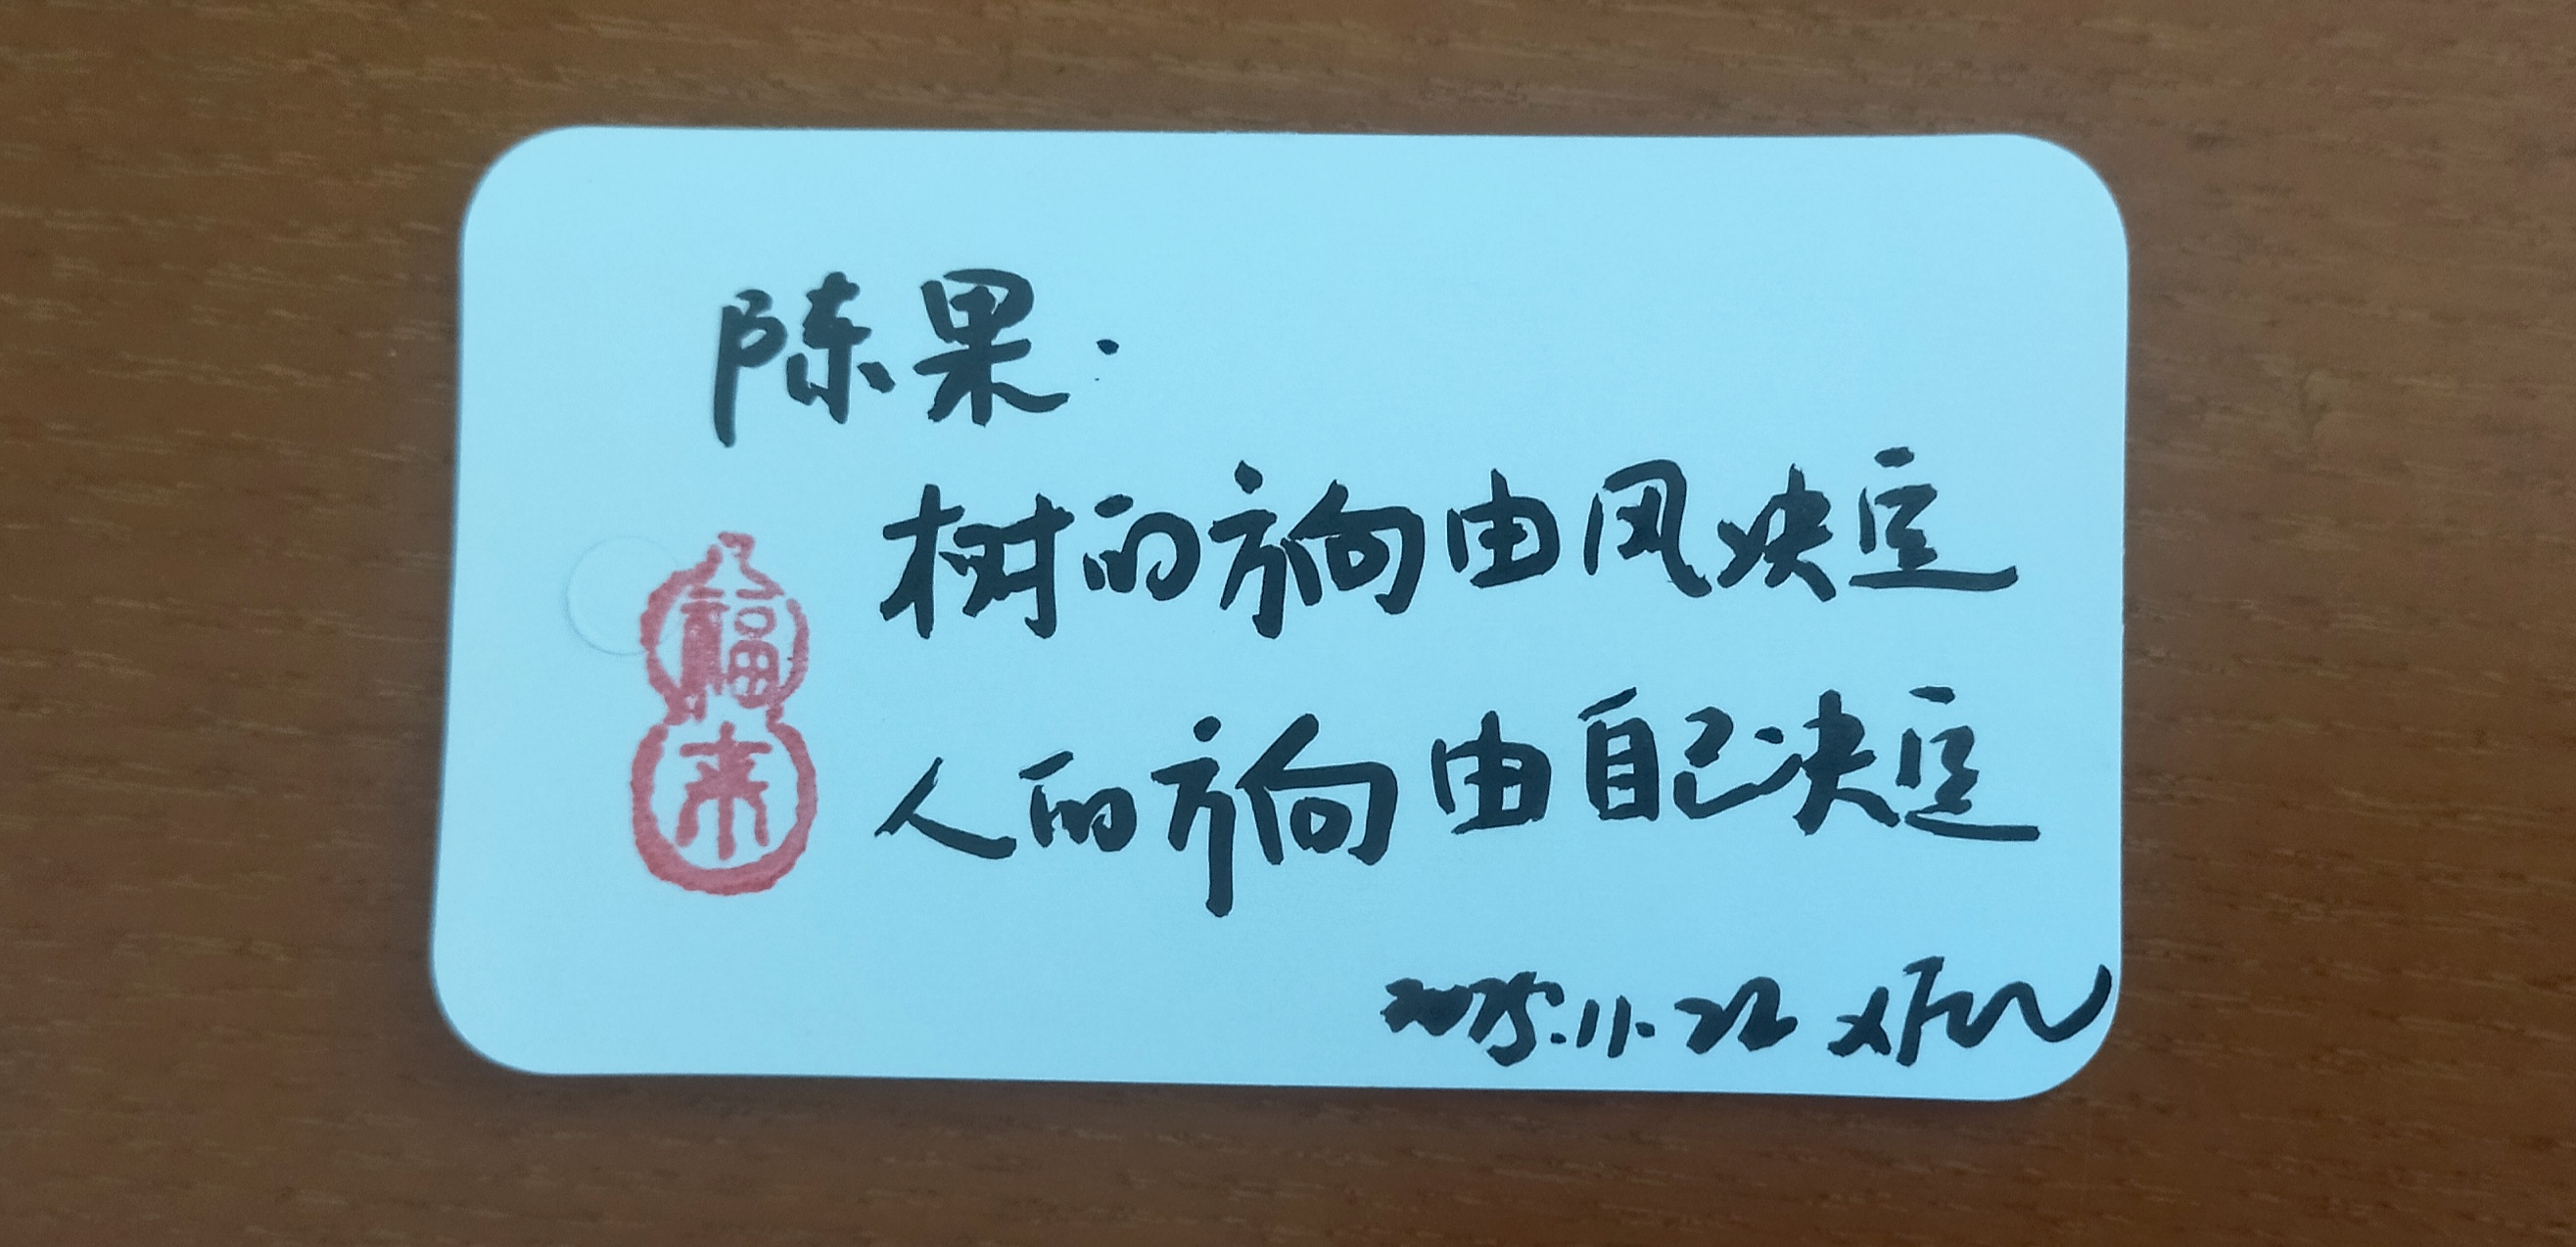 陈果:
树的方向由风决定
人的方向由自己决定
福来
2025.11.22